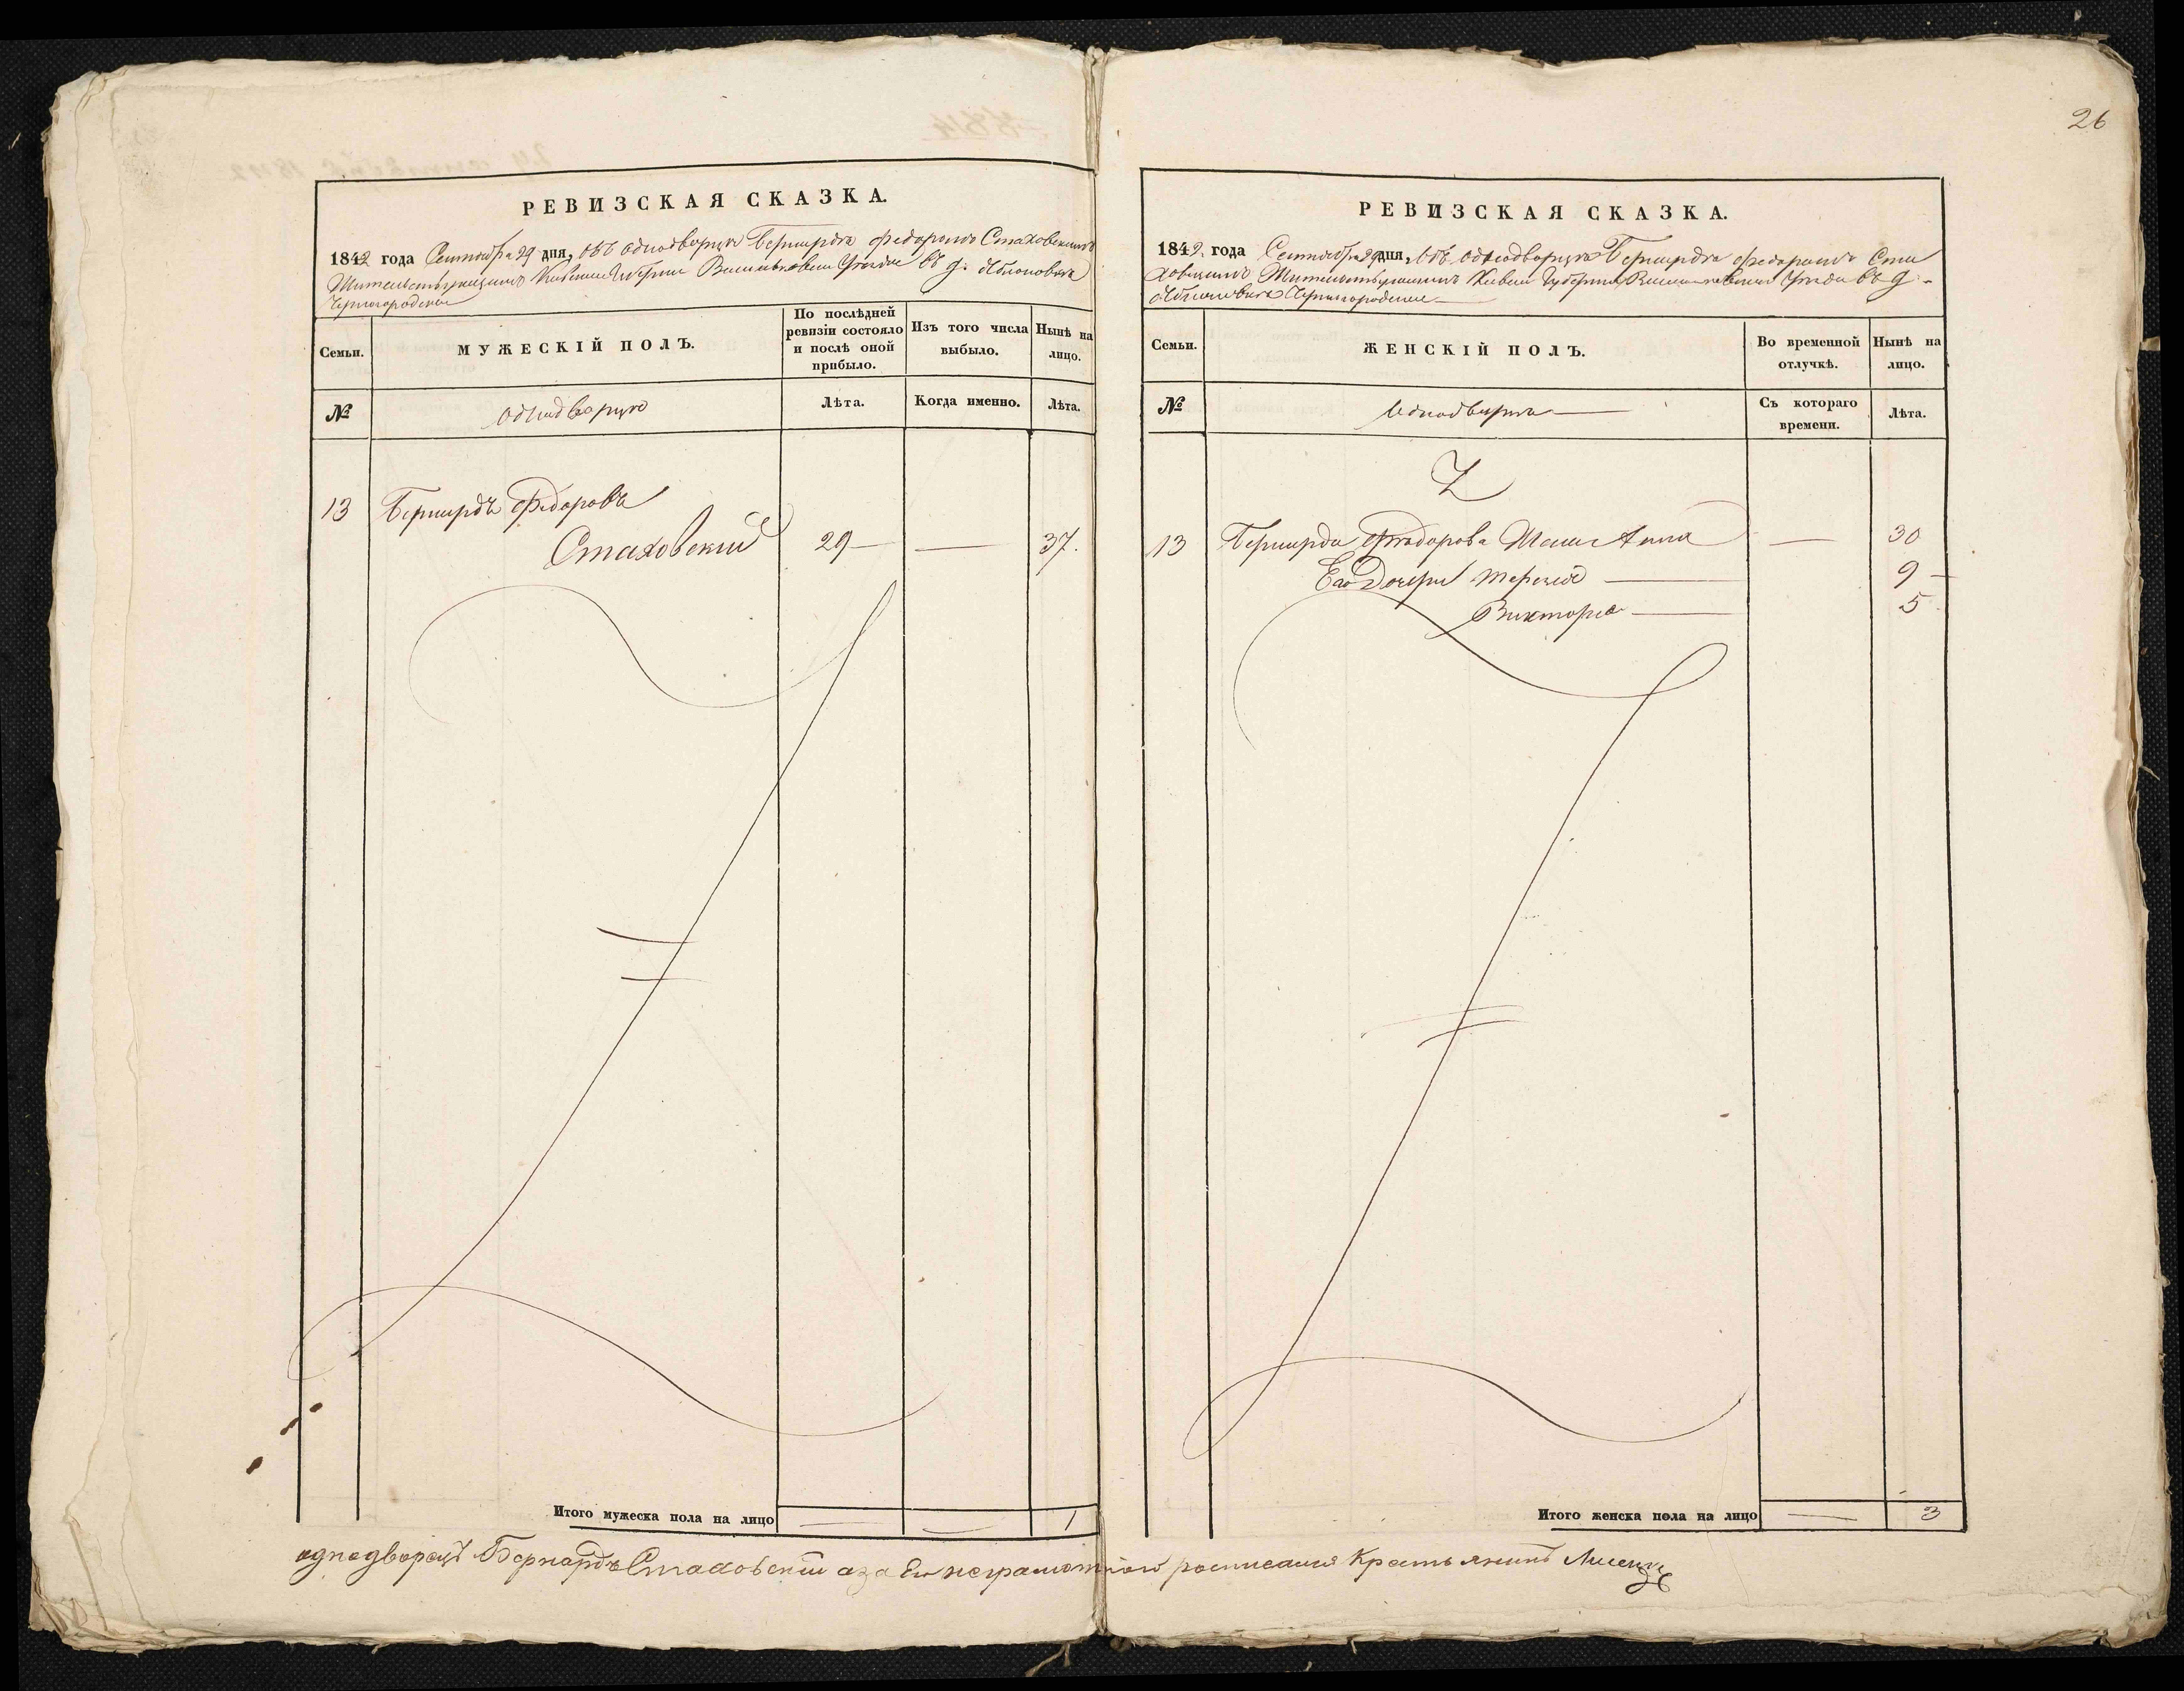 26
РЕВИЗСКАЯ СКАЗКА.
1842 года Сентября 29 дня, Объ однодворцѣ Бернардѣ Федоровѣ Стаховскимъ
Жительствующимъ Кіевской Губерніи Васильковскаго Уѣзда въ д. Яблоновкѣ
Семьи.
МУЖЕСКІЙ ПОЛЪ.
По послѣдней ревизіи состояло и послѣ оной прибыло.
Изъ того числа выбыло.
Нынѣ на лицо.
№
однодворцы
Лѣта.
Когда именно.
Лѣта.
13 Бернардъ Федоровъ
Стаховскій 29 — — 37.
Итого мужеска пола на лицо — — 1
РЕВИЗСКАЯ СКАЗКА.
1842 года Сентября 29 дня, Объ однодворцѣ Бернардѣ Федоровѣ Ста
ховскимъ Жительствующимъ Кіевской Губерніи Васильковскаго Уѣзда въ д.
Семьи.
ЖЕНСКІЙ ПОЛЪ.
Во временной отлучкѣ.
Нынѣ на лицо.
№
однодворцы
Съ котораго времени.
Лѣта.
13 Бернарда Федорова Жена Анна — 30
Его Дочери Терезія — 9
Викторія — 5
Итого женска пола на лицо — 3
однодворецъ Бернардъ Стаховскій а за его неграмотного росписался Крестьянинъ